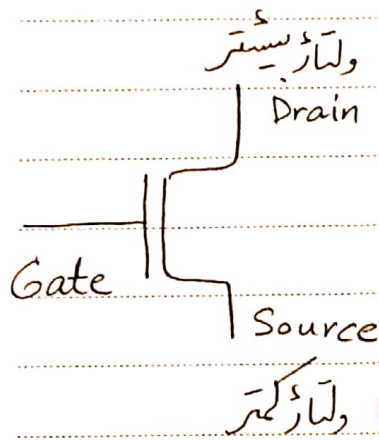 ولتاژ بیشتر
Drain
Gate
Source
ولتاژ کمتر